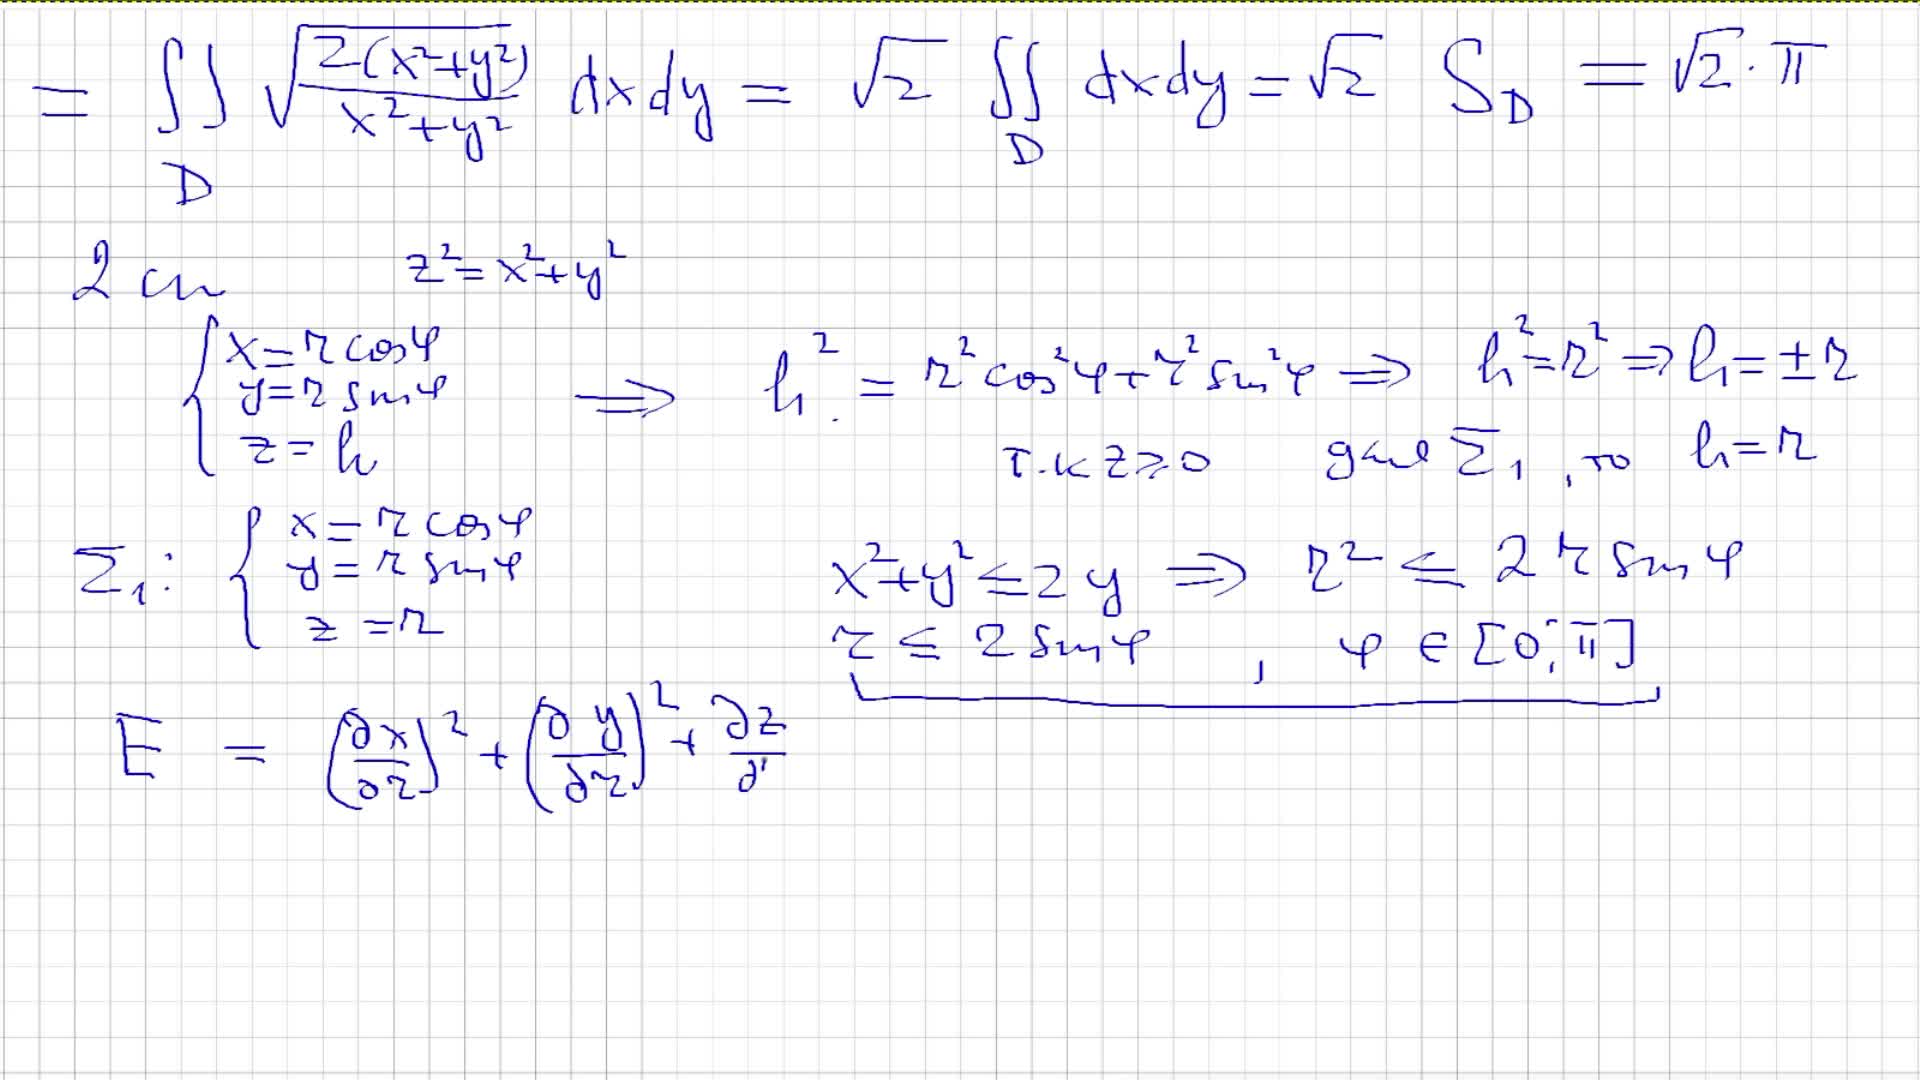 = ∬_D √(2(x²+y²)/(x²+y²)) dxdy = √2 ∬_D dxdy = √2 S_D = √2 · π
2 сп z² = x²+y²
{ x = r cosφ
y = r sinφ
z = h
⟹ h² = r² cos²φ + r² sin²φ ⟹ h² = r² ⟹ h = ± r
т.к z ≥ 0 для Σ₁, то h = r
Σ₁: { x = r cosφ
y = r sinφ
z = r
x²+y² ≤ 2y ⟹ r² ≤ 2 r sinφ
r ≤ 2 sinφ , φ ∈ [0; π]
E = (∂x/∂r)² + (∂y/∂r)² + ∂z/∂